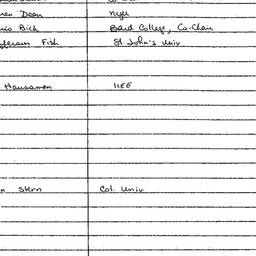 Dean NYU
Bick Bard College, Co-Chair
Fish St John's Univ
Haussamen IIEE
Stern Col. Univ